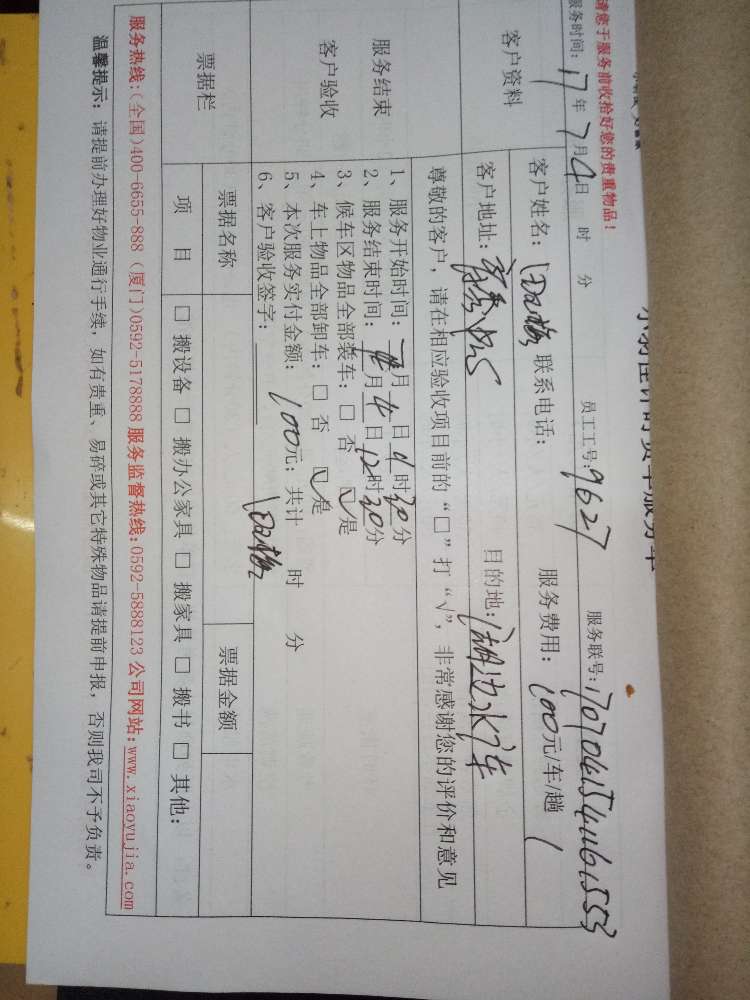 请您于服务前收拾好您的贵重物品!
服务时间: 17年7月4日 时 分 员工工号: 9627 服务联号:
客户资料
客户姓名: 联系电话: 服务费用: 100元/车/趟
客户地址: 目的地: 湖边水库
服务结束
客户验收
尊敬的客户, 请在相应验收项目前的“□”打“√”, 非常感谢您的评价和意见
1、服务开始时间: 月 日 时30分
2、服务结束时间: 月 日12时30分
3、候车区物品全部装车: □ 否 ☑是
4、车上物品全部卸车: □ 否 ☑是
5、本次服务实付金额: 100元; 共计 时 分
6、客户验收签字:
票据栏
票据名称 票据金额
项 目 □ 搬设备 □ 搬办公家具 □ 搬家具 □ 搬书 □ 其他:
服务热线:(全国)400-6655-888 (厦门)0592-5178888 服务监督热线:0592-5888123 公司网站:www.xiaoyujia.com
温馨提示: 请提前办理好物业通行手续, 如有贵重、易碎或其它特殊物品请提前申报, 否则我司不予负责。